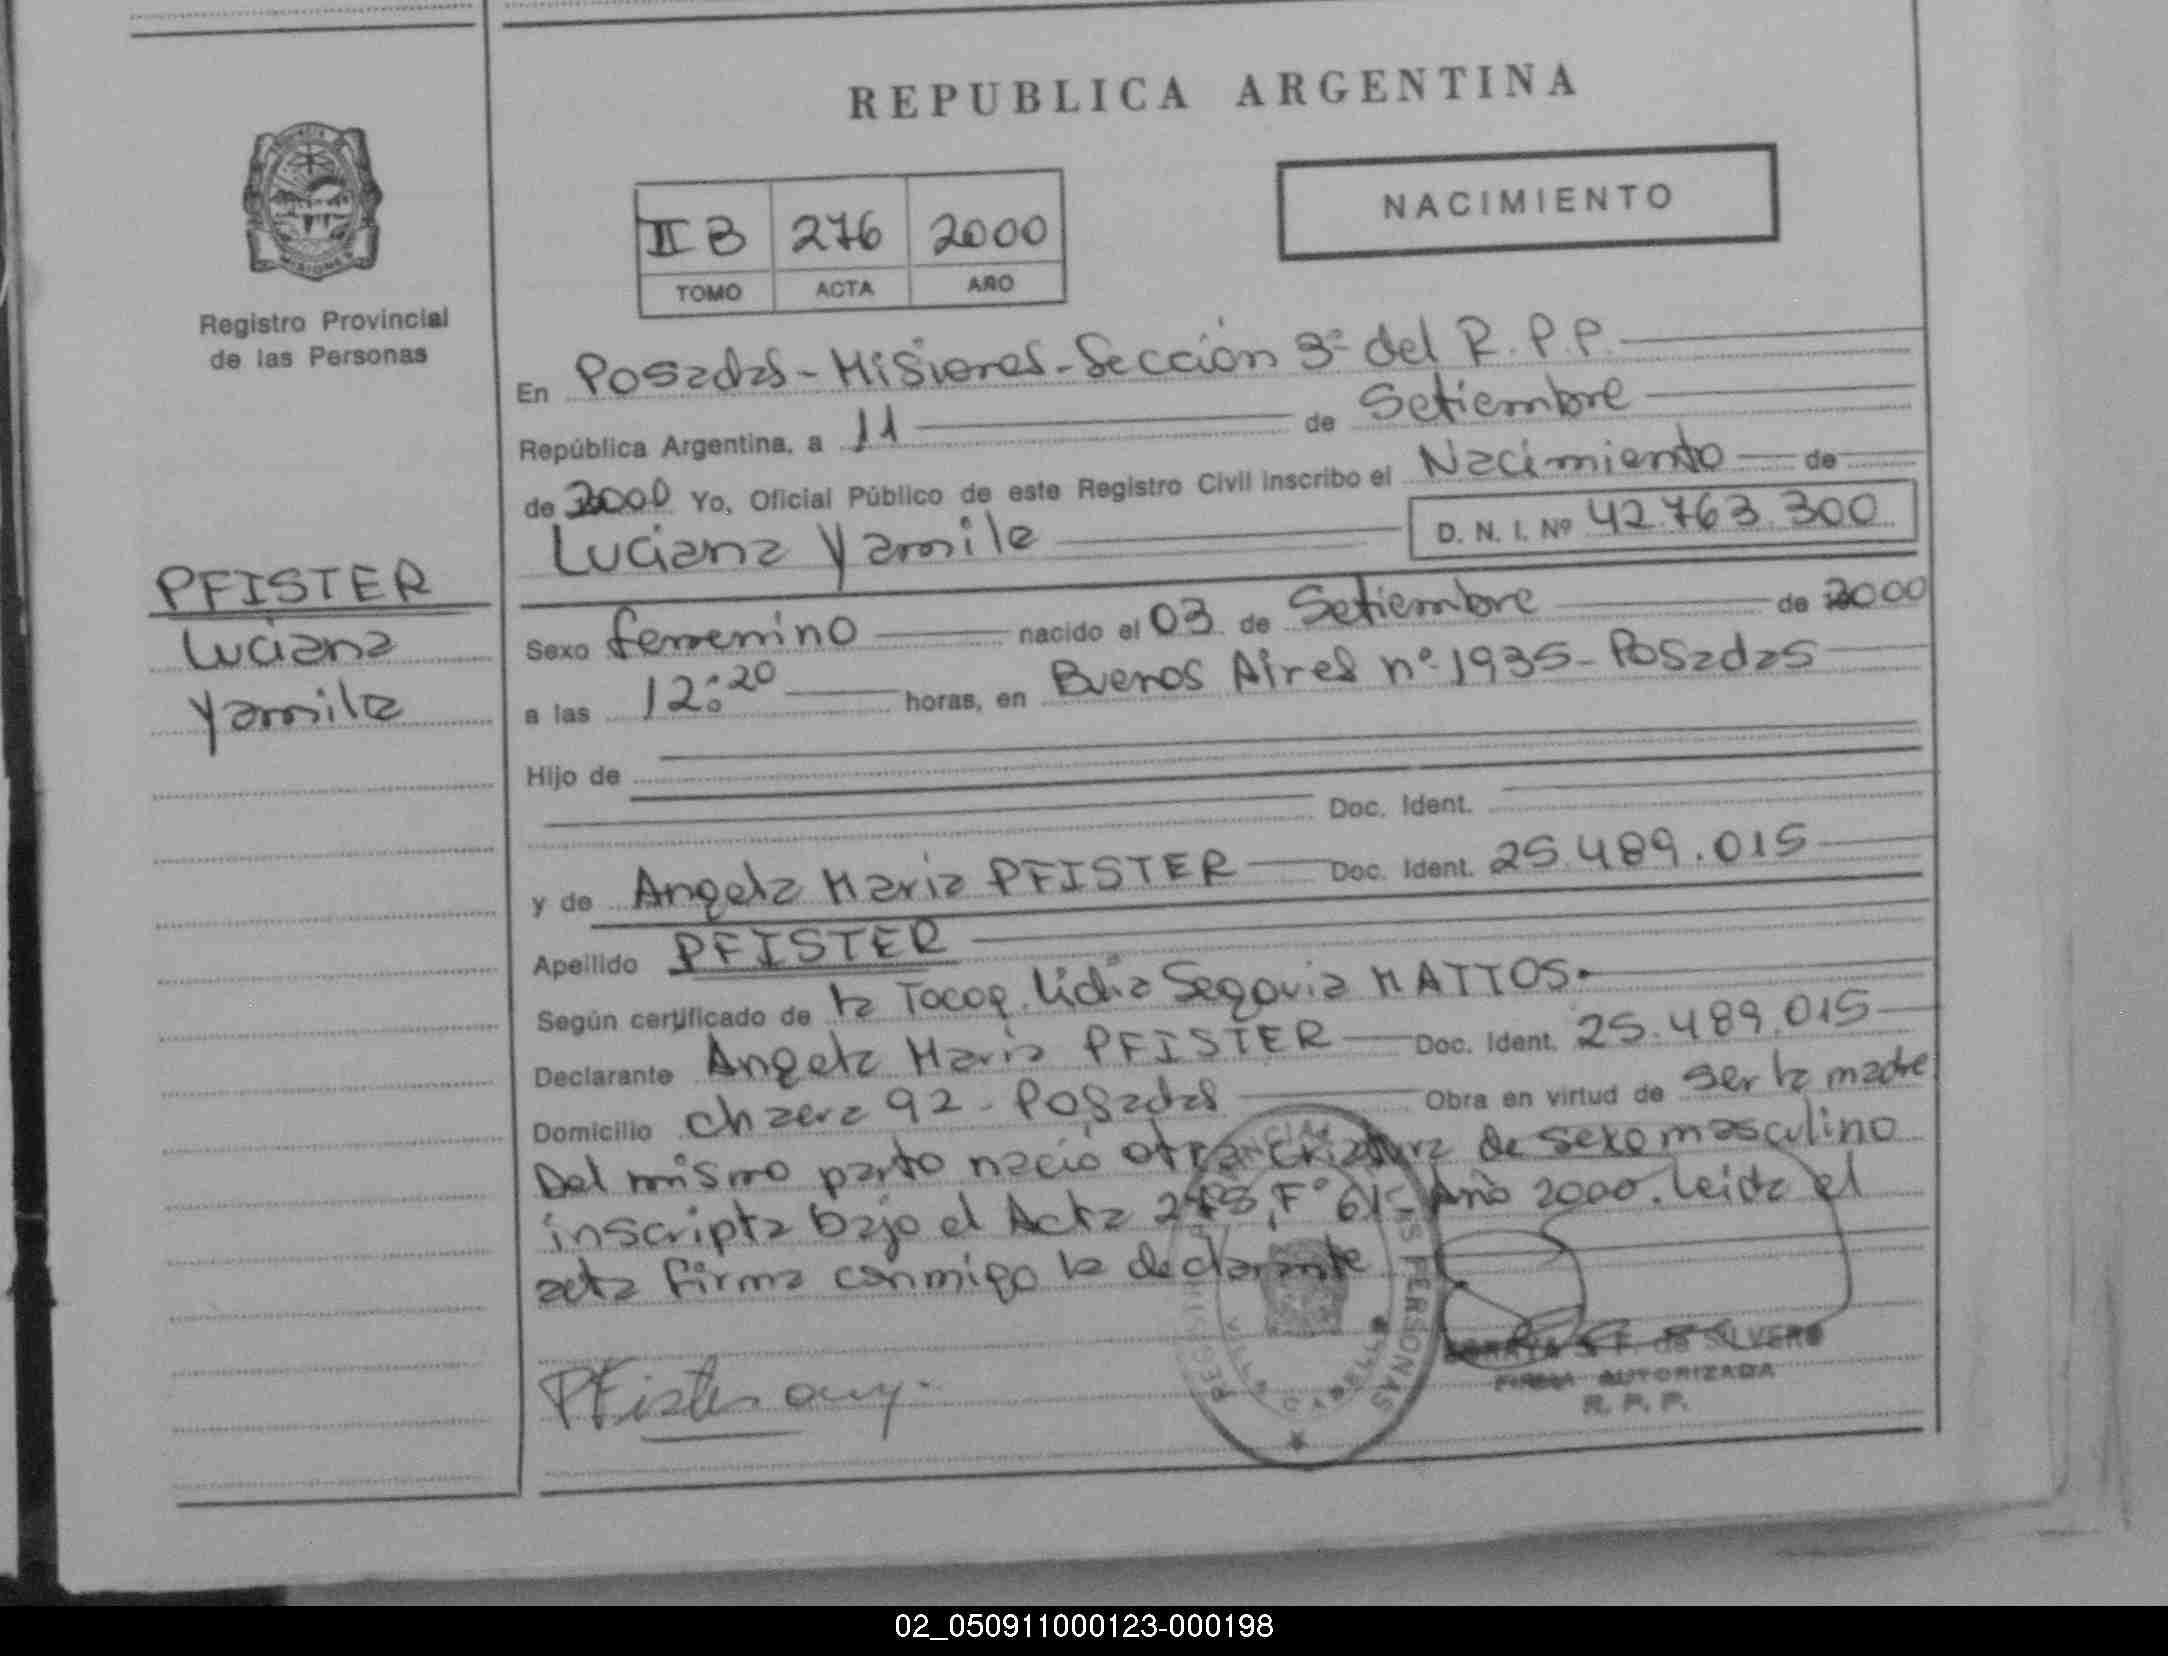 REPUBLICA ARGENTINA
NACIMIENTO
II B 276 2000
TOMO ACTA AÑO
Registro Provincial
de las Personas
PFISTER
Luciana
Yamila
En Posadas - Misiones - Sección 3ª del R.P.P.
República Argentina, a 11 de Setiembre
de 2000 Yo, Oficial Público de este Registro Civil inscribo el Nacimiento de
Luciana Yamila D. N. I. Nº 42.763.300
Sexo femenino nacido el 03 de Setiembre de 2000
a las 12:20 horas, en Buenos Aires nº 1935 - Posadas
Hijo de
Doc. Ident.
y de Angela Maria PFISTER Doc. Ident. 25.489.015
Apellido PFISTER
Según certificado de la Tocog. Lidia Segovia MATTOS.
Declarante Angela Maria PFISTER Doc. Ident. 25.489.015
Domicilio chacra 92 - Posadas Obra en virtud de ser la madre
Del mismo parto nació otra criatura de sexo masculino
inscripta bajo el Acta 275, Fº 61 - Año 2000. Leida el
acta firma conmigo la declarante
PFister
PERSONAS
VILLA CABELLO
F. de SILVERO
FIRMA AUTORIZADA
R. P. P.
02_050911000123-000198